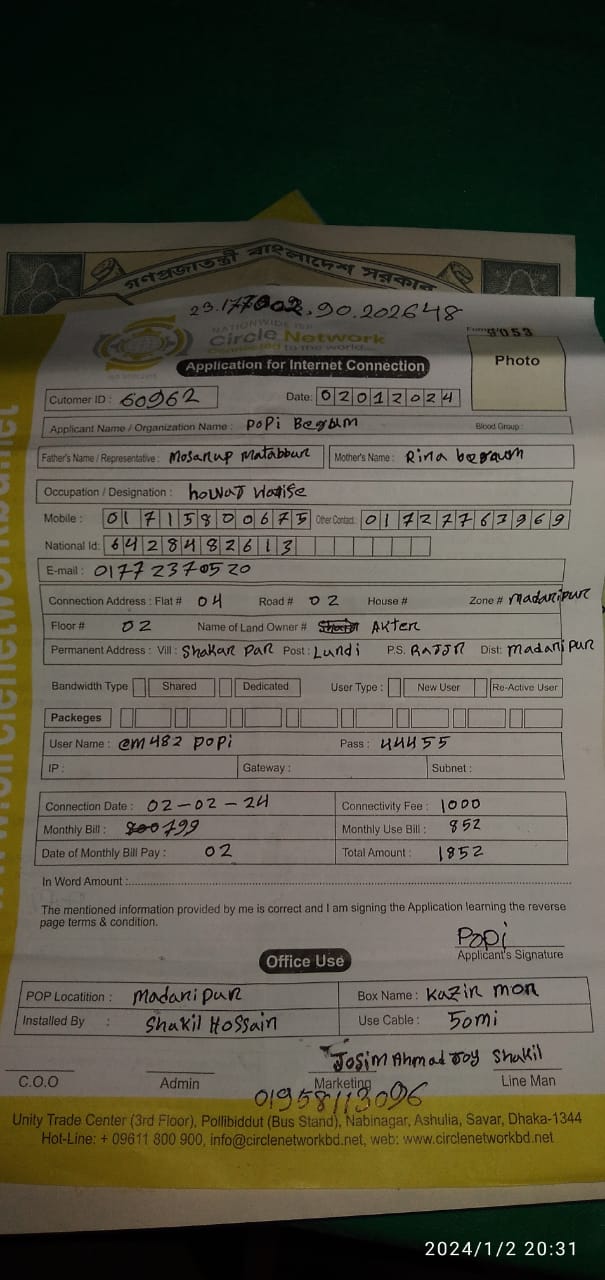 গণপ্রজাতন্ত্রী বাংলাদেশ সরকার
23.177002.90.202648
NATIONWIDE ISP
Circle Network
Connected to the world...
Form 9053
Photo
Application for Internet Connection
Cutomer ID : 60962 Date: 02012024
Applicant Name / Organization Name : POPi Begum Blood Group :
Father's Name / Representative : Mosarup Matabbur Mother's Name : Rina begaum
Occupation / Designation : howat Watise
Mobile : 01715800675 Other Contact: 01727763969
National Id: 6428482613
E-mail : 01772370520
Connection Address : Flat # 04 Road # 02 House # Zone # Madaripur
Floor # 02 Name of Land Owner # Akter
Permanent Address : Vill : Shakar Par Post : Lundi P.S. RAJJR Dist: Madaripur
Bandwidth Type Shared Dedicated User Type : New User Re-Active User
Packeges
User Name : cm482 popi Pass : 44455
IP : Gateway : Subnet :
Connection Date : 02-02-24 Connectivity Fee : 1000
Monthly Bill : 800 799 Monthly Use Bill : 852
Date of Monthly Bill Pay : 02 Total Amount : 1852
In Word Amount :
The mentioned information provided by me is correct and I am signing the Application learning the reverse
page terms & condition.
Popi
Applicant's Signature
Office Use
POP Locatition : Madaripur Box Name : Kazir mor
Installed By : Shakil Hossain Use Cable : 50mi
Josim Ahmad Joy Shakil
C.O.O Admin Marketing Line Man
01958113096
Unity Trade Center (3rd Floor), Pollibiddut (Bus Stand), Nabinagar, Ashulia, Savar, Dhaka-1344
Hot-Line: + 09611 800 900, info@circlenetworkbd.net, web: www.circlenetworkbd.net
www.circlenetworkbd.net
2024/1/2 20:31